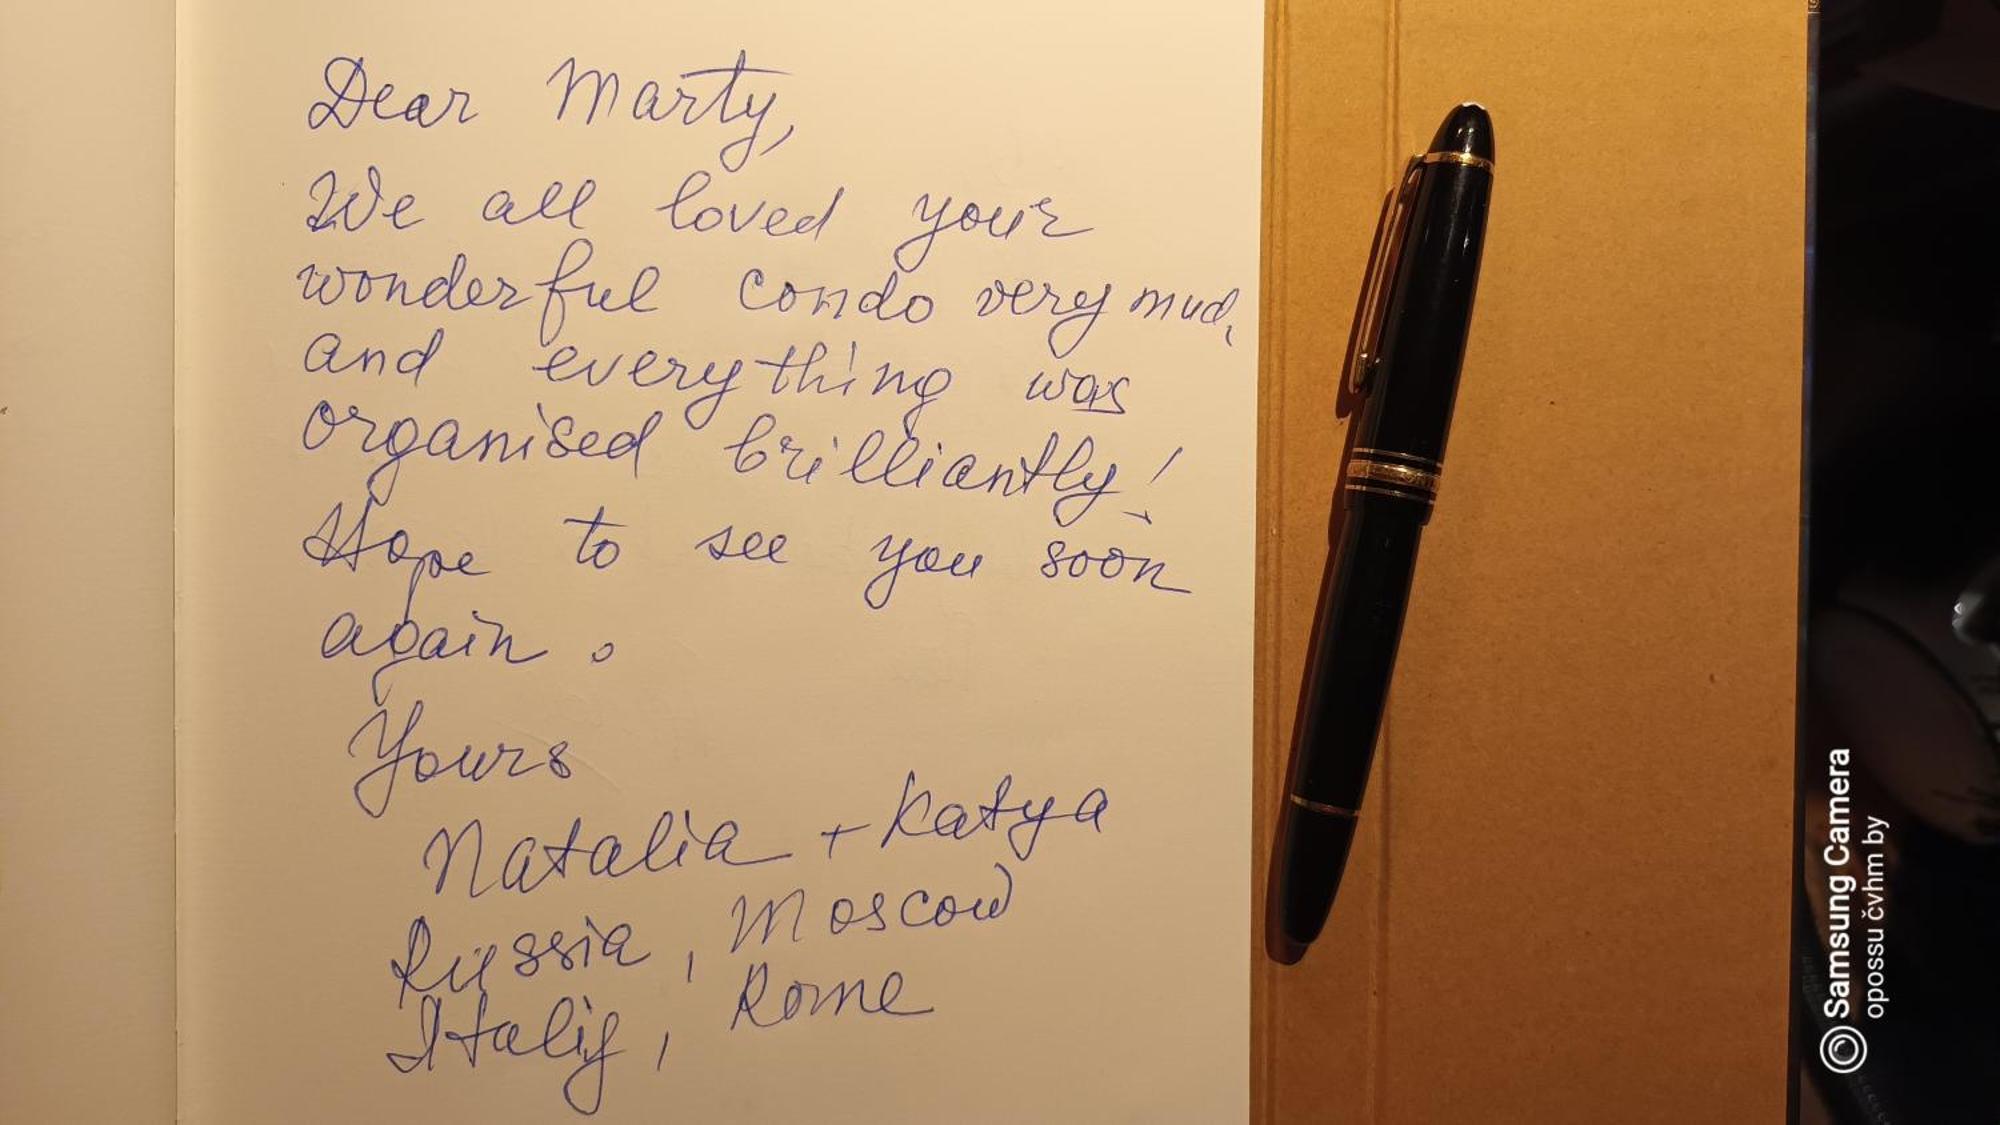 Dear Marty,
We all loved your
wonderful condo very much
and everything was
organised brilliantly!
Hope to see you soon
again.
Yours
Natalia + Katya
Russia, Moscow
Italy, Rome
Samsung Camera
opossu čvhm by